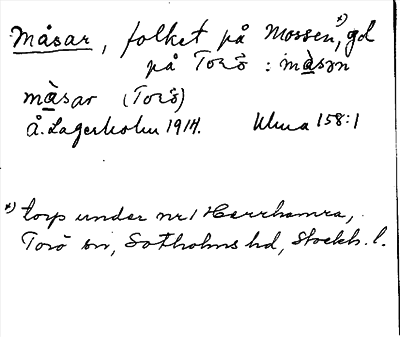 Måsar, folket på Mossen,*) gd
på Torö : mà̱sən
mà̱sar (Torö)
Å. Lagerholm 1914. Ulma 158:1
*) torp under nr 1 Herrhamra,
Torö sn, Sotholms hd, Stockh. l.